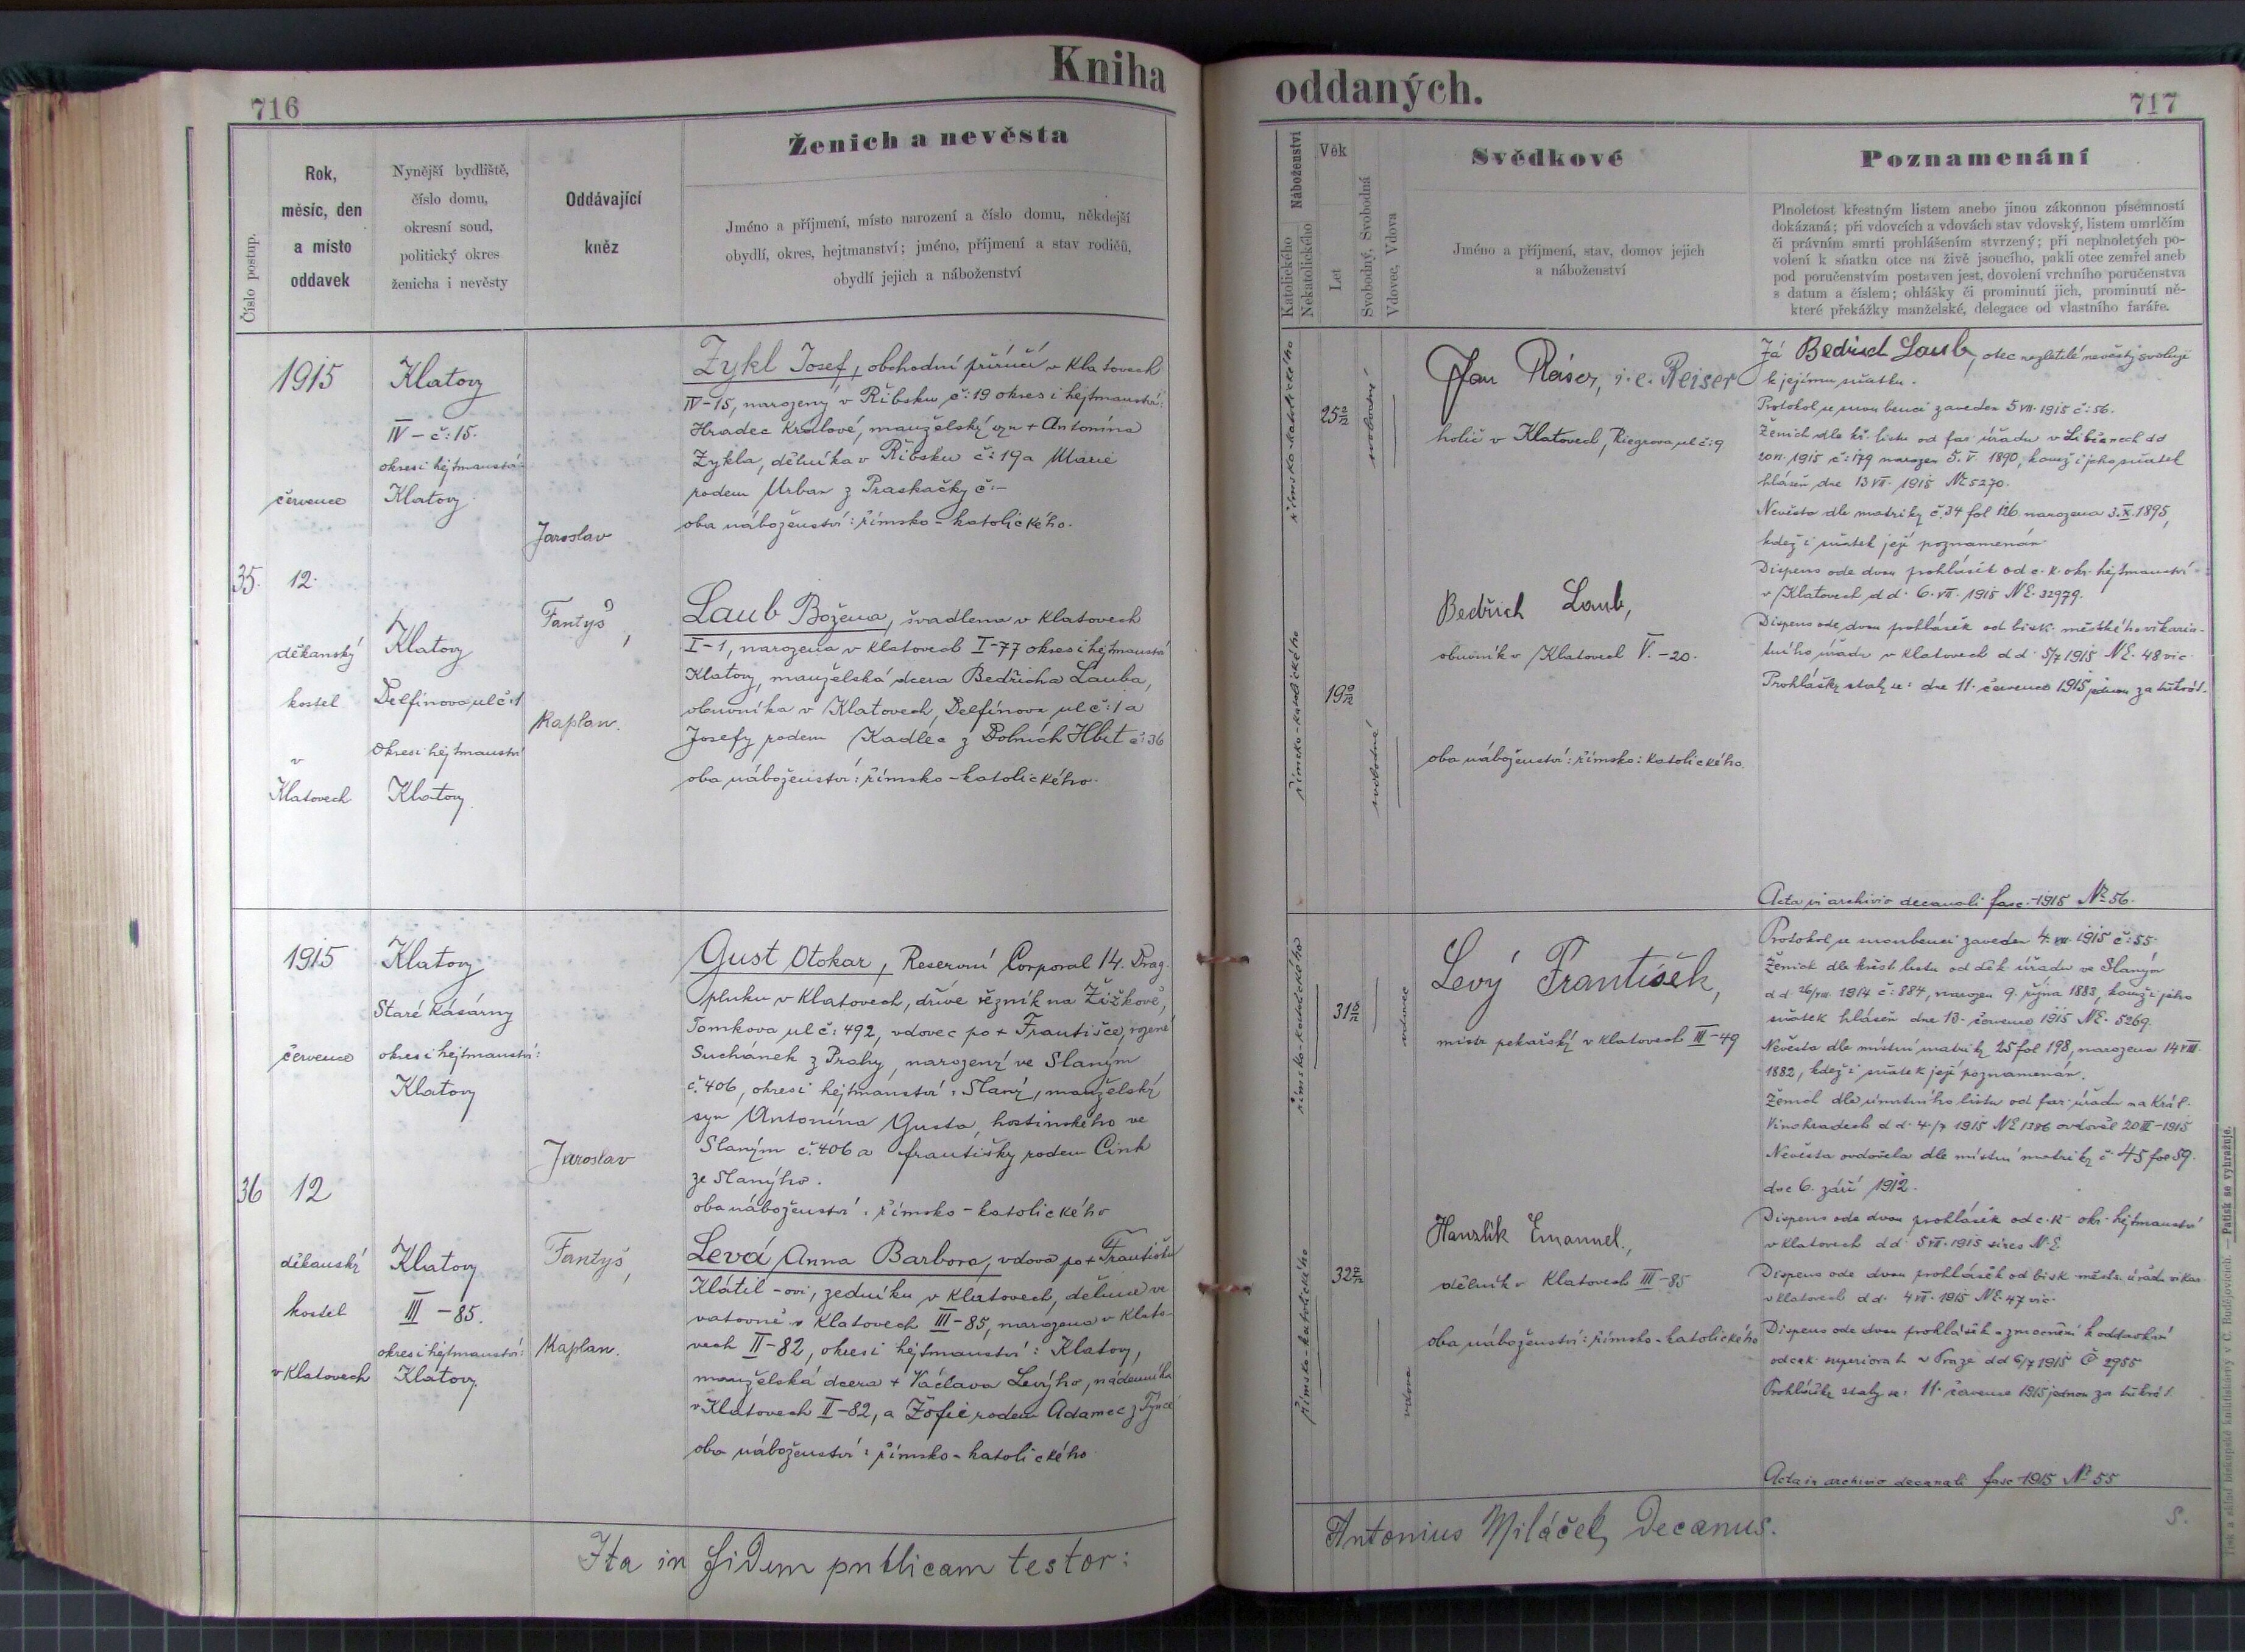 Kniha
oddaných.
716
717
Číslo postup.
Rok,
měsíc, den
a místo
oddavek
Nynější bydliště,
číslo domu,
okresní soud,
politický okres
ženicha i nevěsty
Oddávající
kněz
Ženich a nevěsta
Jméno a příjmení, místo narození a číslo domu, někdejší
obydlí, okres, hejtmanství; jméno, příjmení a stav rodičů,
obydlí jejich a náboženství
Náboženství
Katolického
Nekatolického
Věk
Let
Svobodný, Svobodná
Vdovec, Vdova
Svědkové
Jméno a příjmení, stav, domov jejich
a náboženství
Poznamenání
Plnoletost křestným listem anebo jinou zákonnou písemností
dokázaná; při vdovcích a vdovách stav vdovský, listem umrlčím
či právním smrti prohlášením stvrzený; při neplnoletých po-
volení k sňatku otce na živě jsoucího, pakli otec zemřel aneb
pod poručenstvím postaven jest, dovolení vrchního poručenstva
s datum a číslem; ohlášky či prominutí jich, prominutí ně-
které překážky manželské, delegace od vlastního faráře.
35.
1915
července
12.
děkanský
kostel
v
Klatovech
Klatovy
IV – č: 15.
okres i hejtmanství:
Klatovy
Klatovy
Delfínova ul č: 1
Okres i hejtmanství
Klatovy
Jaroslav
Fantyš,
Kaplan.
Zykl Josef, obchodní příručí v Klatovech
IV-15, narozený v Řibsku č: 19 okres i hejtmanství:
Hradec Králové, manželský syn + Antonína
Zykla, dělníka v Řibsku č: 19 a Marie
rodem Urban z Praskačky č: –
oba náboženství: římsko-katolického.
Laub Božena, švadlena v Klatovech
I-1, narozena v Klatovech I-77 okres i hejtmanství
Klatovy, manželská dcera Bedřicha Lauba,
obuvníka v Klatovech, Delfínova ul č: 1 a
Josefy rodem Kadlec z Dolních Hbit č: 36
oba náboženství: římsko-katolického.
římsko-katolického
25 2/12
svobodný
římsko-katolického
19 9/12
svobodná
Jan Räiser, i. e. Reiser
holič v Klatovech, Riegrova ul č: 9
Bedřich Laub,
obuvník v Klatovech V.-20.
oba náboženství: římsko: katolického.
Já Bedřich Laub, otec nezletilé nevěsty svoluji
k jejímu sňatku.
Protokol se snoubenci zaveden 5 VII. 1915 č: 56.
Ženich dle kř. listu od far úřadu v Libčanech dd
1915 č: 179 narozen 5. V. 1890, kamž i jeho sňatek
hlášen dne 13 VII. 1915 No 5270.
Nevěsta dle matriky č. 34 fol 126 narozena 3. X. 1895,
kdež i sňatek její poznamenán
Dispens ode dvou prohlášek od c. k. okr. hejtmanství
v Klatovech dd. 6. VII. 1915 NE. 32979.
Dispens ode dvou prohlášek od bisk. městského vikariá-
tního úřadu v Klatovech dd. 5/7 1915 NE. 48 vic.
Prohlášky staly se: dne 11. července 1915 jednou za třikrát.
Acta in archivio decanali fasc. 1915 No 56.
36
1915
července
12
děkanský
kostel
v Klatovech
Klatovy
Staré Kasárny
okres i hejtmanství:
Klatovy
Klatovy
III – 85.
okres i hejtmanství:
Klatovy.
Jaroslav
Fantyš,
Kaplan.
Gust Otokar, Reservní Corporal 14. Drag.
pluku v Klatovech, dříve řezník na Žižkově,
Tomkova ul č: 492, vdovec po + Františce, rozené
Suchánek z Prahy, narozený ve Slaným
č. 406, okres i hejtmanství: Slaný, manželský
syn Antonína Gusta, hostinského ve
Slaným č. 406 a Františky rodem Cink
ze Slanýho.
oba náboženství: římsko-katolického
Levá Anna Barbora, vdova po + Františku
Klátil-ovi, zedníku v Klatovech, dělnice ve
vatovně v Klatovech III-85, narozena v Klato-
vech II-82, okres i hejtmanství: Klatovy,
manželská dcera + Václava Levýho, nádeníka
v Klatovech II-82, a Žofie rodem Adamec z Týnce
oba náboženství: římsko-katolického
římsko-katolického
31 5/12
vdovec
římsko-katolického
32
vdova
Levý František,
mistr pekařský v Klatovech III-49
Hanzlík Emanuel.,
dělník v Klatovech III-85
oba náboženství: římsko-katolického
Protokol se snoubenci zaveden 4. VII. 1915 č: 55.
Ženich dle křest listu od děk. úřadu ve Slaným
dd 26/VIII 1914 č: 884, narozen 9. října 1883, kamž i jeho
sňatek hlášen dne 13. července 1915 NE. 5269.
Nevěsta dle místní matriky 25 fol 198, narozena 14 VIII.
1882, kdež i sňatek její poznamenán.
Ženich dle úmrtního listu od far. úřadu na Král.
Vinohradech dd. 4./7 1915 NE 1386 ovdověl 20 III-1915
Nevěsta ovdověla dle místní matriky č. 45 fol 59.
dne 6. září 1912.
Dispens ode dvou prohlášek od c. k. okr. hejtmanství
v Klatovech dd. 5 VII. 1915 sines N. E.
Dispens ode dvou prohlášek od bisk. městs. úřadu vikar.
v Klatovech dd. 4 VII. 1915 NE. 47 vic.
Dispens ode dvou prohlášek a zmocnění k oddavkám
od c. k. superiorátu v Praze dd 6/7 1915 Č 2955
Prohlášky staly se: 11. července 1915 jednou za třikrát.
Acta in archivio decanali fasc 1915 No 55
Ita in fidem publicam testor:
Antonius Miláček, Decanus.
S.
Tisk a sklad biskupské knihtiskárny v Č. Budějovicích. — Patisk se vyhražuje.